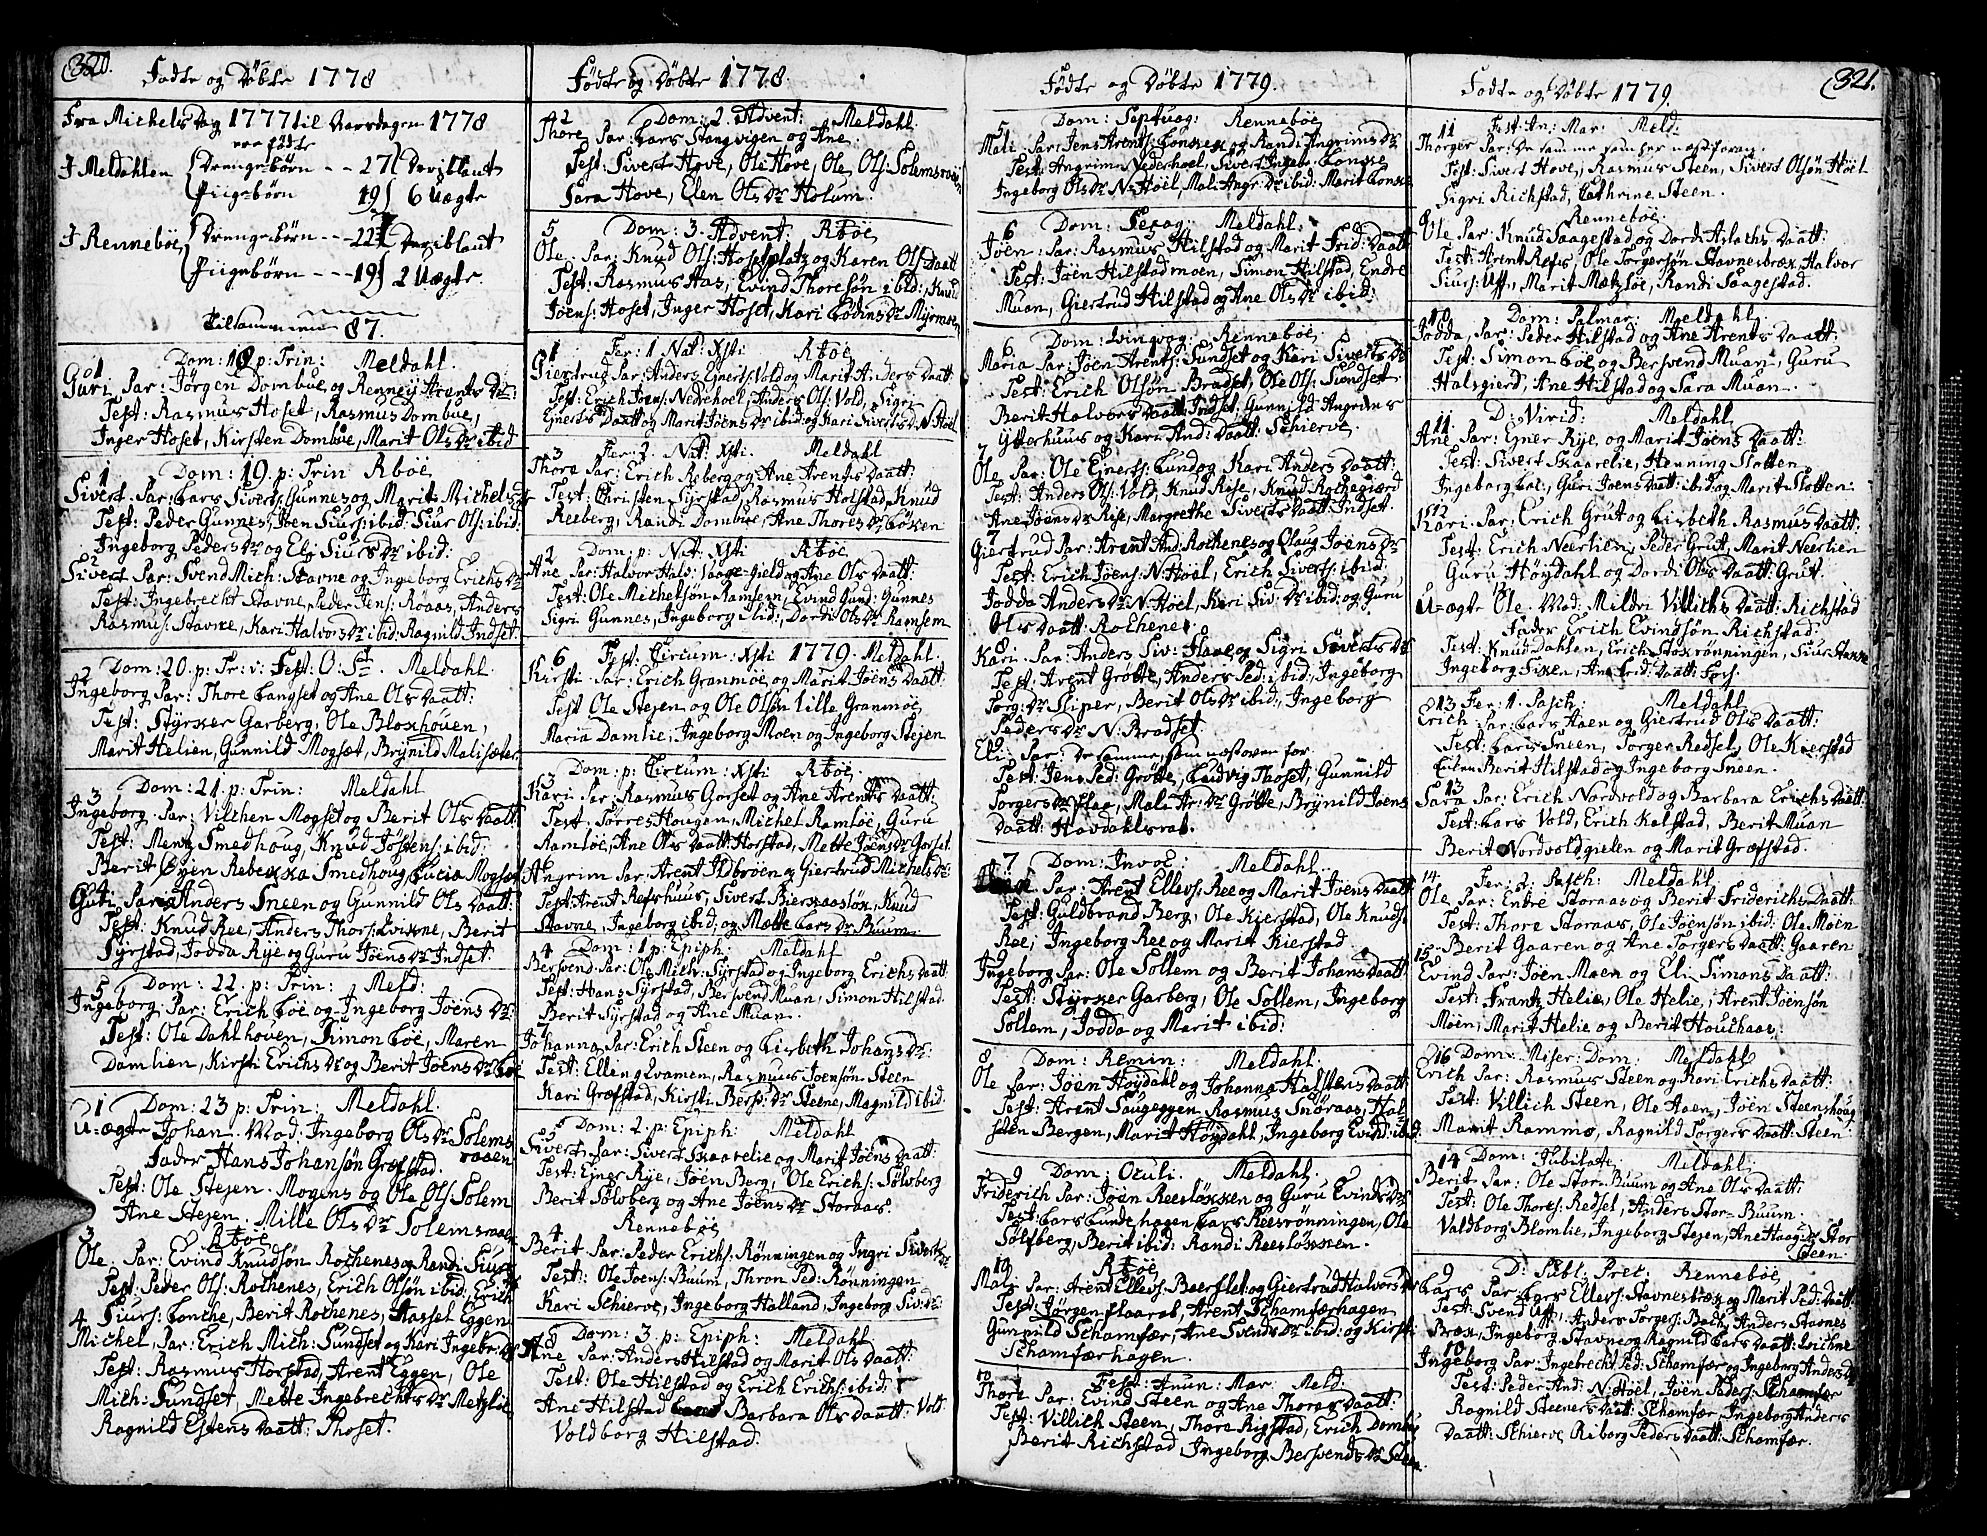 320.
Fødte og Døbte 1778
Fra Michels Dag 1777 til Aarsdagen 1778
var fødte
I Meldahlen Drengebørn - - 27 Deriblant
Piigebørn 19 6 Uægte
I Renneböe, Drengebørn - - - 22 Deriblant
Piigebørn - - - 19 2 Uægte.
Tilsammen 87.
Dom: 18 p: Trin: Meldahl.
1 Guri Par: Jørgen Dombue, og Renney Arents Dr:
Test: Rasmus Hoset, Rasmus Dombue,
Inger Hoset, Kirsten Dombue, Marit Ols Dr ibid
Dom: 19. p: Trin Rböe
1 Sivert Par: Lars Siverts: Gunnes og Marit Michels Dr
Test: Peder Gunnes, Joen Siurs: ibid: Siur Ols: ibid:
Ingeborg Peders Dr og Eli Siurs Dr ibid:
2 Sivert Par: Svend Mich: Stavne og Ingeborg Erichs Dr
Test: Ingebrecht Stavne, Peder Jens: Röaas, Anders
Rasmus: Stavne, Kari Halvors Dr ibid: Ragnild Indset.
Dom: 20. p: Tr: v: Fest. O: S: Meldahl.
2 Ingeborg Par: Thore Langset og Ane Ols Daatt:
Test: Styrker Garberg, Ole Bloxhouen,
Marit Helien, Gunnild Mogset, Brynild Malisæter
Dom: 21. p: Trin: Meldahl
3 Ingeborg Par: Vilchen Mogset og Berit Ols Daatt:
Test: Mentz Smedhoug, Knud Jostens: ibid:
Berit Öyen Rebekka Smedhoug Lucia Mogset
4 Guri Par: Anders Sneen og Gunnild Ols Daatt:
Test: Knud Ree, Anders Thors: Qvisne, Berit
Syrstad, Jodda Rye og Guru Joens Dr Indset.
Dom: 22. p: Trin: Meld:
5 Ingeborg Par: Erich Löe og Ingeborg Joens Dr:
Test: Ole Dahlhoven, Simon Löe, Maren
Damlien, Kirsti Erichs Dr og Berit Joens Dr Löe
Dom: 23 p: Trin: Meldahl.
1 U-ægte Johan Mod: Ingeborg Ols Dr Solems
raaen
Fader Hans Johansøn Grøfstad.
Test: Ole Stejen. Mogens og Ole Ols: Solem
Ane Stejen. Mille Ols Dr Solemsraaen
Rböe
3 Ole. Par: Evind Knudsøn Rothenes og Randi Siurs
Test: Peder Ols: Rothenes, Erich Olsøn ibid: Erich
Siurs: Lonche, Berit Rothenes, Hassel Eggen
4 Michel, Par: Erich Mich: Sundset og Kari Ingebr: Dr
Test: Rasmus Horstad, Arent Eggen, Ole
Mich: Sundset, Mette Ingebrechts Dr Metzlie
Ragnild Estens Daatt: Thoset.
Fødte og Døbte 1778.
Dom: 2. Advent: Meldahl.
2 Thore Par: Lars Stangvigen og Ane
Test: Sivert Hove, Ole Hove, Ole Ols: Solemsraaen
Sara Hove, Elen Ols Dr Holum.
Dom: 3. Advent: Rböe
5 Ole Par: Knud Ols: Hosetplatz og Karen Ols Daatt
Test: Rasmus Has, Evind Thoresøn ibid:, Knud
Joens: Hoset, Inger Hoset, Kari Lodins Dr Myrmoen
Fer: 1 Nat: Xsti Rböe
1 Giertrud Par: Anders Ejnerts: Vold og Marit Anders Daatt
Test: Erich Joens: Nedrehoel, Anders Ols: Vold, Sigri
Ejnerts Daatt og Marit Joens Dr ibid: og Kari Siverts D. N. Höel
Fer: 2. Nat: Xsti. Meldahl
3 Thora Par: Erich Reberg og Ane Arents Daatt:
Test: Christen Syrstad, Rasmus Holstad, Knud
Reeberg, Randi Dombue, Ane Thores Dr Löken
Dom: p: Nat: Xsti Rböe
2 Ane Par: Halvor Hald: Vaage-Gield og Ane Ols Daatt:
Test: Ole Michelsøn Ramsem, Evind Gund: Gunnes
Sigri Gunnes, Ingeborg ibid:, Dordi Ols Dr Ramsem
Fest: Circum: Xsti 1779. Meldahl.
6 Kirsti Par: Erich Granmoe og Marit Joens Daatt:
Test Ole Stejen og Ole Olsøn Lille Granmoe
Maria Damlie, Ingeborg Moen og Ingeborg Stejen
Dom: p: Circum: Xsti Rböe
3 Kari Par: Rasmus Gorset og Ane Arents Daatt:
Test: Torres Hougen, Michel Ramlöe, Guru
Aamlöe, Ane Ols Daatt: Horstad, Mette Joens Dr Gorset
6 Angrim Par: Arent Ildbröen og Giertrud Michels Dr
Test: Arent Refshuus, Sivert Bierkaasløk, Knud
Stavne, Ingeborg ibid: og Mette Lars Dr Buum
Dom: 1 p: Epiph: Meldahl
4 Bersvend. Par: Ole Mich: Syrstad og Ingeborg Erichs Daatt
Test: Hans Syrstad, Bersvend Muan, Simon Hilstad.
Berit Syrstad og Ane Muan.
7 Johanna Par: Erich Steen og Lisbeth Johans Dr:
Test: Elleng Evamen, Rasmus Joensøn Steen
Kari Græfstad, Kirsti Bersv: Dr Steene, Magnild ibid:
Dom: 2. p: Epiph: Meldahl
5 Sivert Par: Sivert Skaarelie og Marit Joens Daatt:
Test: Ejner Rye, Joen Berg, Ole Erichs: Sölvberg
Berit Sölvberg og Ane Joens Dr Storaas.
Rennebøe
4 Berit Par: Peder Erichs: Rønningen og Ingri Siverts Dr
Test: Ole Joens: Buum, Thron Ped: Rønningen
Kari Schierve, Ingeborg Halland, Ingeborg Siv: Dr
Dom: 3. p: Epiph: Meldahl
8 Ane Par: Anders Hilstad og Marit Ols Daatt:
Test: Ole Hilstad og Erich Erichs: ibid:
Ane Hilstad Barbara Ols Daatt: Vold
Voldborg Hilstad.
Fødte og Døbte 1779.
Dom: Septuag: Renneböe
5 Mali Par: Jens Arents: Lonke og Randi Angrims Dr
Test: Angrim Nederhoel, Sivert Ingebr: Lonke
Ingeborg Ols Dr N: Höel, Mali Angr: Dr ibid: Marit Lonke
Dom: Sexag: Meldahl
6 Jöen Par: Rasmus Hilstad og Marit Frid: Daatt:
Test: Joen Hilstadmoen, Simon Hilstad, Endre
Muan, Giertrud Hilstad og Ane Ols Dr ibid:
Dom: Qvinqvag: Renneböe
6 Maria Par: Joen Arents: Sundset og Kari Siverts Dr
Test: Erich Olsøn Bradset, Ole Ols: Sundset
Berit Halvors Daatt: Indset, Gunnild Angrims
Ytterhuus og Kari And: Daatt: Schierve
7 Ole Par: Ole Ejnerts: Lund og Kari Anders Daatt:
Test: Anders Ols: Vold, Knud Rise, Knud Rothagierd
Ane Joens Dr Rise, Margrethe Siverts Daatt: Indset.
7 Giertrud Par: Arent And: Rothenes og Olaug Joens Dr
Test: Erich Joens: N: Höel, Erich Siverts: ibid:
Jodda Anders Dr N: Höel, Kari Siv: Dr ibid: og Guru
Ols Daatt: Rothene.
8 Kari. Par: Anders Siv: Flaae og Sigri Siverts Dr
Test: Arent Grötte, Anders Ped: ibid: Ingeborg
Torg: Dr Sliper, Berit Ols Dr ibid:, Ingeborg
Peders Dr N. Bradset.
9 Eli Par: De samme som næst oven for
Test: Jens Ped: Grötte, Ludvig Thoset, Gunnild
Torgers Dr Flaae, Mali Ar: Dr Grötte, Brynild Joens
Daatt: Havdahlsrab.
Dom: Invoc: Meldahl
7 Par: Arent Ellevs: Ree og Marit Ivers Daatt
Test: Guldbrand Berg, Ole Kierstad, Ole Knuds:
Ree, Ingeborg Ree og Marit Kierstad
9 Ingeborg Par: Ole Sollem og Berit Johans Daatt
Test: Styrker Garberg, Ole Sollem, Ingeborg
Sollem, Jodda og Marit ibid:
Dom: Remin: Meldahl.
8 Ole Par: Joen Høydahl og Johanna Halstens Daatt:
Test: Arent Saugeggen, Rasmus Snöraas, Hal-
sten Bergen, Marit Høydahl, Ingeborg Evind: ibid:
Dom: Oculi. Meldahl.
9 Friderich Par: Joen Reesløkken og Guru Evinds Dr
Test: Lars Lundehagen, Lars Reesrønningen, Ole
Sølfberg, Berit ibid: Randi Reesløkken.
Rböe
10 Mali Par: Arent Ellevs: Bæersslet og Giertrud Halvors Dr
Test: Jørgen Flaarab, Arent Schamferhagen
Gunnild Schamfær, Ane Svends Dr ibid: og Kirsti
Schamfærhagen.
Fest: Anun: Mar: Meld:
10 Thore Par: Evind Steen og Ane Thores Daatt:
Test: Villich Steen, Thore Rigstad, Erich Dombu
Berit Richstad Ingeborg Bersvends Dr Steen.
321.
Fødte og Døbte 1779.
Fest: An: Mar: Meld:
11 Thorger Par: De samme som her næst foran.
Test: Sivert Hove, Rasmus Steen, Sivert Olsøn Höel
Sigri Richstad, Cathrine Steen.
Renneböe.
8 Ole Par: Knud Saagestad og Dordi Aslachs Daatt:
Test: Arent Refs, Ole Torgersøn Stavnesbræk, Halvor
Siurs: Uff, Marit Metzlöe, Randi Saagestad.
Dom: Palmar: Meldahl.
10 Jodda, Par: Peder Hilstad og Ane Arents Daatt:
Test: Simon Löe og Bersvend Muan, Guru
Halsgierd, Ane Hilstad og Sara Muan.
D: Virid: Meldahl
11 Ane Par: Ejner Rye, og Marit Joens Daatt:
Test: Sivert Skaarelie, Henning Slotten
Ingeborg Löe, Guri Joens Daatt: ibid: og Marit Slotten.
12 Kari Par: Erich Grut og Lisbeth Rasmus Daatt:
Test: Erich Neerlien, Peder Grut, Marit Neerlien
Guru Høydahl og Dordi Ols Daatt: Grut.
12 U-ægte Ole. Mod: Mildri Villichs Daatt: Richstad
Fader Erich Evindsøn Richstad.
Test: Knud Dahlen, Erich Stokrønningen, Siur Stokke
Ingeborg Fiske, Ane Frid: Daatt: Fors.
Fer: 1. Pasch: Meldahl
13 Erich Par: Lars Haen og Giertrud Ols Daatt:
Test: Lars Sneen, Torger Redsel, Ole Kierstad
Berit Hilstad og Ingeborg Sneen.
13 Sara Par: Erich Nordvold og Barbara Erichs Daatt:
Test: Lars Vold, Erich Kalstad, Berit Muan
Berit Nordvoldgielen og Marit Græfstad.
Fer: 2. Pasch: Meldahl
14 Ole Par: Entre Storaas og Berit Friderichs Daatt:
Test: Thore Storaas, Ole Joensøn ibid: Ole Moen
Berit Gaaren og Ane Torgers Daatt: Gaaren
15 Evind Par: Joen Moen og Eli Simons Daatt:
Test: Frantz Helie, Ole Helie, Arent Joensøn
Moen, Marit Helie og Berit Houchaas,
Dom: Miser: Dom: Meldahl
16 Erich Par: Rasmus Steen og Kari Erichs Daatt:
Test: Villich Steen, Ole Aaen, Joen Steenshoug
Marit Rammo, Ragnild Torgers Daatt: Steen
Dom: Jubilate: Meldahl,
14 Berit Par: Ole Stor-Buum og Ane Ols Daatt:
Test: Ole Thores: Redsel, Anders Stor-Buum.
Valdborg Blomlie, Ingeborg Stejen, Ane Haag: Dr Stor
Steen.
D: Publ: Prec: Renneböe
9 Lars Par: Lars Ellevs: Stavnesbræk og Marit Ped: Daatt:
Test: Svend Uff, Anders Torgers: Bach, Anders Stavnes
Bræk, Ingeborg Stavne og Ragnild Lars Daatt: Loichne
10 Ingeborg Par: Ingebrecht Ped: Schamfær og Ingeborg Anders Dr
Test: Peder And: N: Höel, Joen Peders: Schamfær
Ragnild Steeners Daatt: Schamfær, Ingeborg Anders
Daatt: Schierve, Riborg Peders Daatt: Schamfær.